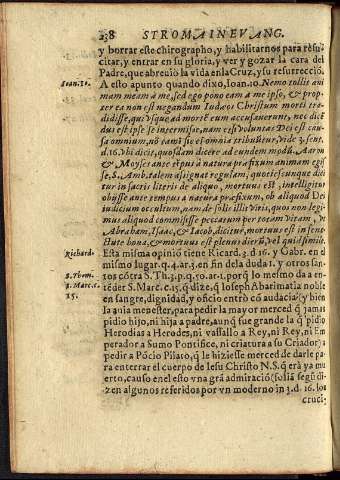 238 STROMA IN EVANG.
y borrar este chirographo, y habilitarnos para resu
citar, y entrar en su gloria, y ver y gozar la cara del
Padre, que abreuió la vida en la Cruz, y su resurrecció.
Ioan. 10. A esto apunto quando dixo, Ioan. 10. Nemo tollit ani
mam meam à me, sed ego pono eam a me ipso, & prop
ter ea non est negandum Iudæos Christum morti tra
didisse, qui vsque ad mortē eum accusauerunt, nec dicē
dus est ipse se interimisse, nam etsi voluntas Dei est causa
omnium, nō tamē sic ei omnia tribuūtur, vide 3. sent.
d. 16. vbi dicit, quosdam dicere ad eundem modū. Aarm
& Moyses ante tēpus à natura præfixum animam egis
se, S. Amb. talem assignat regulam, quotiescunque dici
tur in sacris literis de aliquo, mortuus est, intelligitur
obijsse ante tempus à natura præfixum, ob aliquod Dei
iudicium occultum, nam de solis illis viris, quos non legi
mus aliquod commisisse peccatum per totam vitam, vt
Abraham, Isaac, & Iacob, dicitur, mortuus est in sene
ctute bona, & mortuus est plenus dierū, vel quid simile.
Richard. Esta misma opinió tiene Ricard. 3. d. 16. y Gabr. en el
mismo lugar q. 4. ar. 3. en fin de la duda 1. y otros san
S. Thom. tos cōtra S. Th. 3. p. q. 50. ar. 1. porq̃ lo mesmo da a en-
S. Marc. c. tēder S. Marc. c. 15. q̃ dize, q̃ Ioseph Abarimatia noble
15. en sangre, dignidad, y oficio entró cō audacia (y bien
la auia menester, para pedir la mayor merced q̃ jamas
pidio hijo, ni hija a padre, aunq̃ fue grande la q̃ pidio
Herodias a Herodes, ni vassallo a Rey, ni Rey, ni Em
perador a Sumo Pontifice, ni criatura a su Criador) a
pedir a Pōcio Pilato, q̃ le hiziesse merced de darle pa
ra enterrar el cuerpo de Iesu Christo N.S. q̃ erá ya mu
erto, causo en el esto vna grā admiració (solia segū di
zen algunos referidos por vn moderno in 3. d. 16. los
cruci-